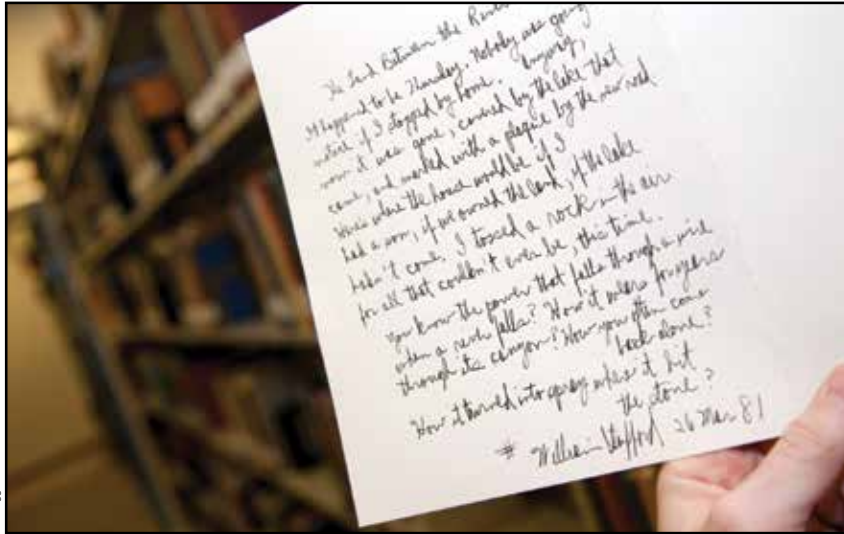 The Land Between the Rivers
It happened to be Thursday. Nobody was going
notice if I stopped by home. Anyway,
now it was gone, covered by the lake that
came, and marked with a plaque by the new road
where the house would be if I
had a son, if we owned the land, if the lake
hadn't come. I tossed a rock in the air
for all that couldn't ever be, this time.
You know the power that falls through a
when a rock falls? How it wears for years
through its canyon? How you often come
back alone?
How it turned into spray when it hit
the stone?
# William Stafford 26 Mar 81